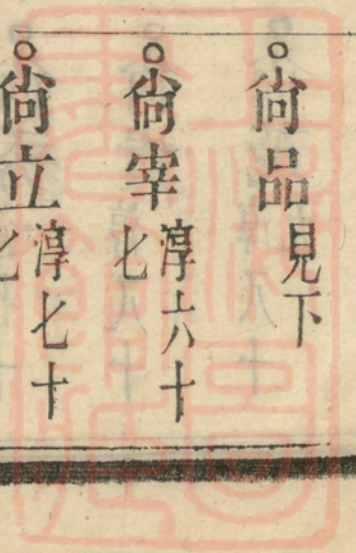 ○尙品見下
○尙宰淳六十七
○尙立淳七十七